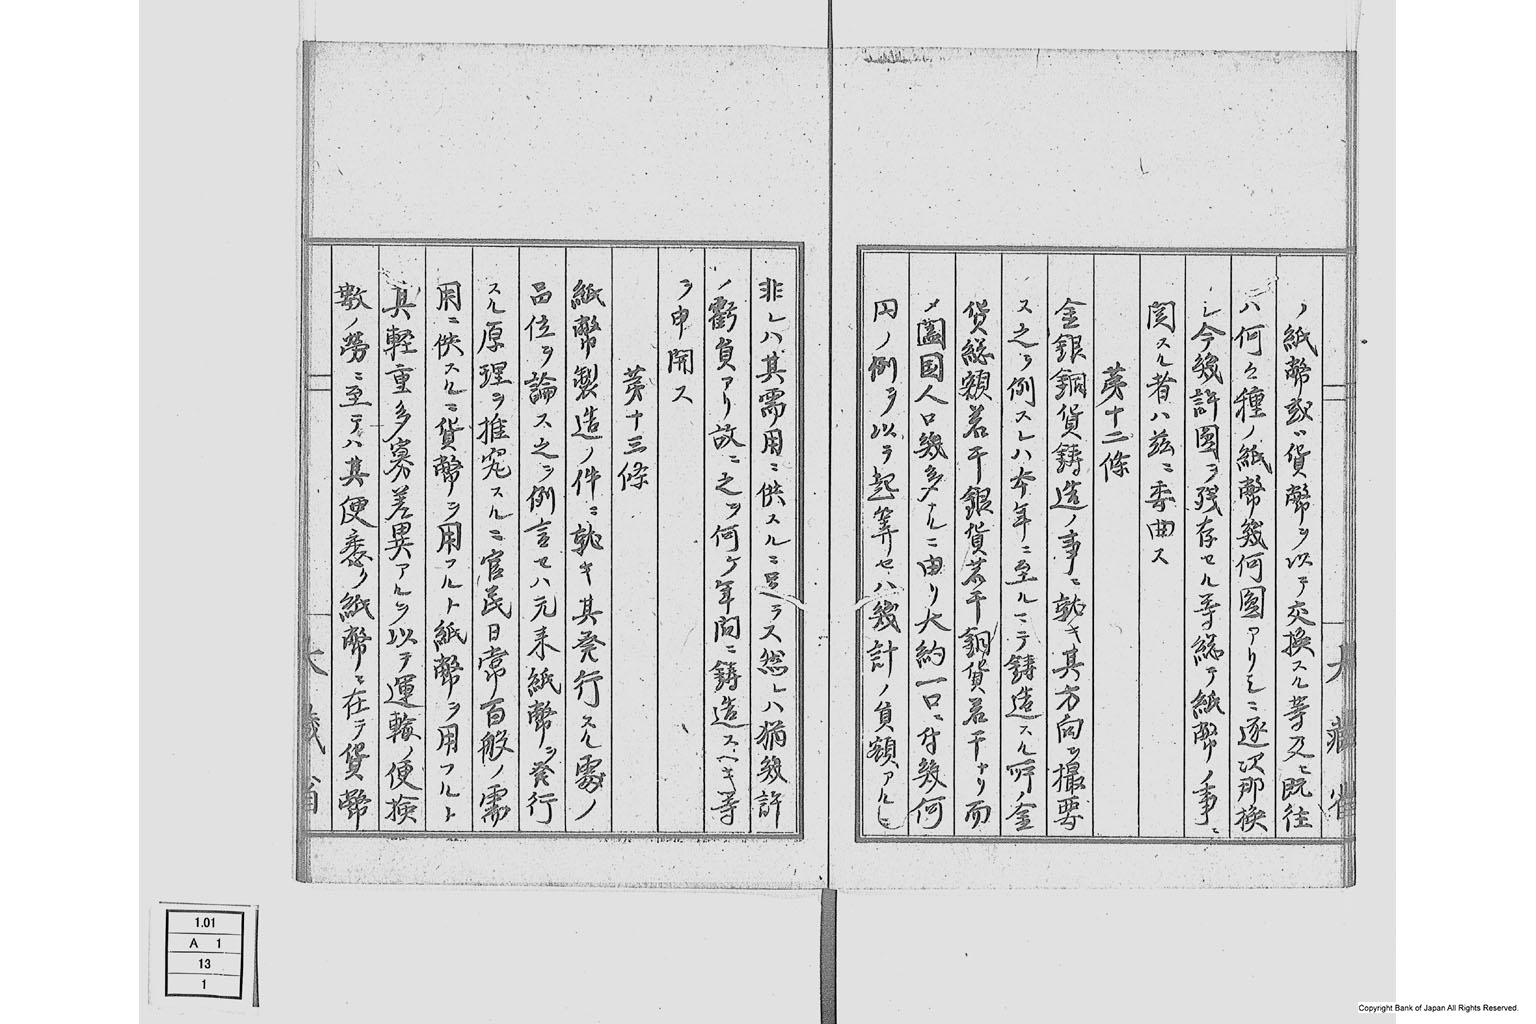 ノ紙幣或ハ貨幣ヲ以テ交換スル等及ヒ既往
ハ何々種ノ紙幣幾何圓アリシニ逐次那換
シ今幾許圓ヲ残存セル等総テ紙幣ノ事ニ
関スル者ハ茲ニ委曲ス
第十二條
金銀銅貨鋳造ノ事ニ就キ其方向ヲ撮要
ス之ヲ例スレハ本年ニ至ルマテ鋳造スル所ノ金
貨総額若干銀貨若干銅貨若干ナリ而
メ闔国人口幾多ナルニ由リ大約一口ニ付幾何
円ノ例ヲ以テ起算セハ幾計ノ負額アルニ
非レハ其需用ニ供スルニ足ラス然レハ猶幾許
ノ虧負アリ故ニ之ヲ何ケ年間ニ鋳造スヘキ等
ヲ申開ス
第十三條
紙幣製造ノ件ニ就キ其発行スル処ノ
品位ヲ論ス之ヲ例言セハ元来紙幣ヲ発行
スル原理ヲ推究スルニ官民日常百般ノ需
用ニ供スルニ貨幣ヲ用フルト紙幣ヲ用フルト
其軽重多寡差異アルヲ以テ運輸ノ便検
数ノ労ニ至テハ其便悉ク紙幣ニ在テ貨幣
大蔵省
大蔵省
1.01
A 1
13
1
Copyright Bank of Japan All Rights Reserved.